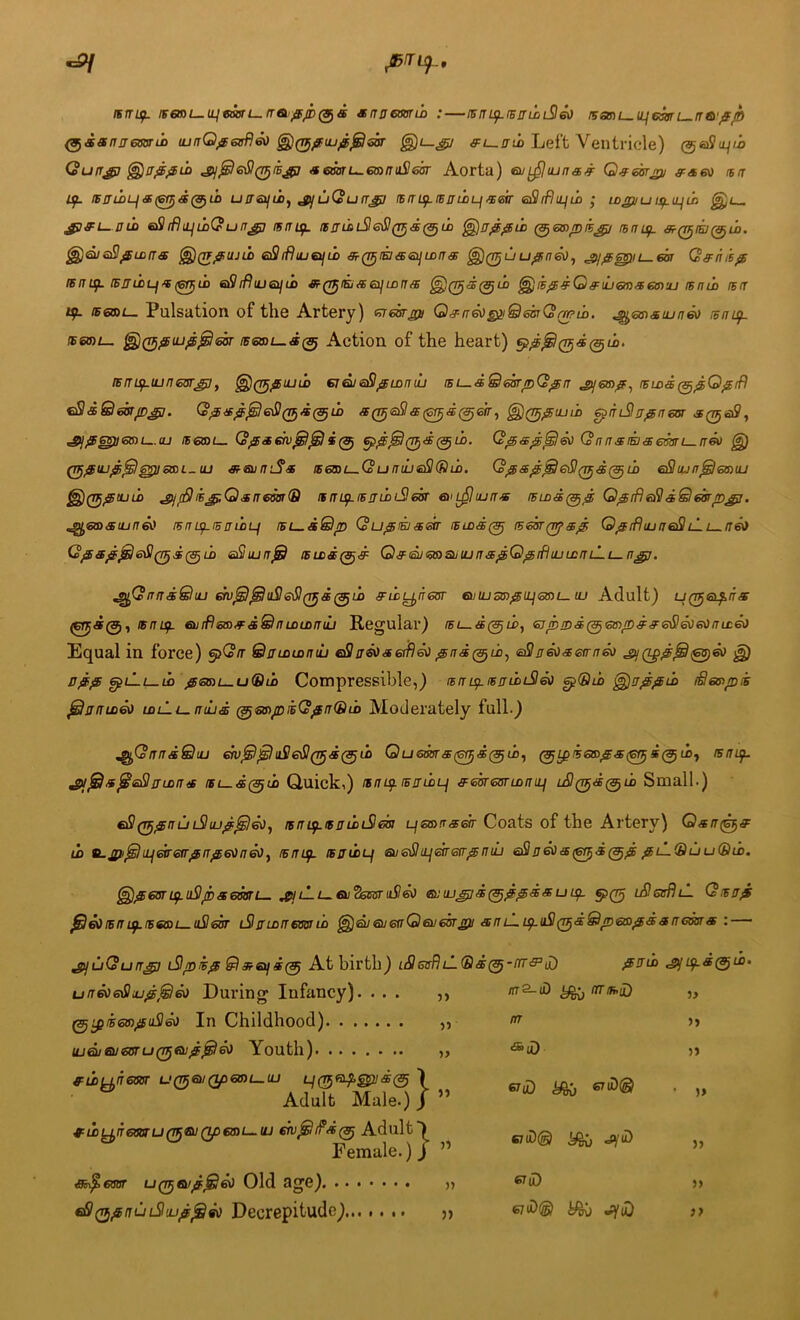 அ நாடி.
நாடி நடையுண்டாவதற்குக் காரணம் :—நாடிநரம்பில் நடையுண்டாவதற்
குக்காரணம் யாதெனில் இருதயத்தின் இடது சடரம் Left Ventricle) குவியும்
போது இரத்தம் அதிவிருந்து கண்டையின் Aorta) வழியாகச் சென்று சகல நா
டி நரம்புகளுக்கும் பாயும், அப்போது நாடிநரம்புகள் விரியும் ; மறுபாடியும் இட
துசடரம் விரியும்போது நாடி நரம்பிலிருக்கும் இரத்தம் குறைந்து நாடி சுருங்கும்.
இவ்விதமாக இருதயம் விரியவும் சுருங்கவுமாக இருப்பதால், அத்துடன் சேர்ந்த
நாடி நரம்புகளும் விரியவும் சுருங்கவுமாக இருக்கும் இந்தச்செய்கையை நாம் நா
டி நடை Pulsation of the Artery) என்று சொல்லுகின்றோம். ஆகையால் நாடி
நடை இருதயத்தின் நடைக்கு Action of the heart) ஒத்திருக்கும்.
நாடியானது, இருதயம் எவ்விதமாய் நடக்கின்றதோ அதை, நமக்குத்தெரி
விக்கின்றது. தேகத்திலிருக்கும் கருவிகளுக்குள், இருதயம் ஒர்பிரதான கருவி,
அத்துடைய நடை தேகஸ்திதிக்கு ஒத்திருக்கும். தேகத்தில் ரோகங்கண்டால் இ
ருதயத்துடைய சுவாசக நடைபோய்விடும். தேகத்திலிருக்கும் வியாதியை
இருதயம் அறிந்துகொண்டு நாடிநரம்பின் வழியாக நமக்குத் தெரிவிக்கின்றது.
ஆகையால் நாடிநரம்பு நடக்கிற பேதங்கள் நமக்கு நன்குகத் தெரியாவிட்டால்
தேகத்திலிருக்கும் வியாதி நமக்குச் செவ்வையாகத்தெரியமாட்டாது.
ஆரோக்கிய ஸ்திதியிலிருக்கும் சம்பூரண வயதையுடைய Adult) புருஷர்க
ளுக்கு, நாடி வரிசைக்கிரமமாய் Regular) நடக்கும், ஏற்றக்குறைச்சவில்லாமல்
Equal in force) ஒரே கிரமமாய் விரல்களில் தாக்கும், விரல்களால் அழுத்தினால் இ
ரத்த ஒட்டம் தடையுறும் Compressible,) நாடிநரம்பில் ஓடும் இரத்தம் நிறைந்
திராமல் மட்டாய்க் குறைந்தோடும் Moderately full.)
ஆரோக்கிய ஸ்திதியிலிருக்கும் பெண்களுக்கும், குழந்தைகளுக்கும், நாடி
அதிகதீவிரமாக நடக்கும் Quick,) நாடிநரம்பு சன்னமாயு மிருக்கும் Small.)
விருதாப்பியத்தில், நாடிநரம்பின் புறைகள் Coats of the Artery) கோளுச
ம் உறுதியுள்ளதாதலால், நாடி நரம்பு வலியுள்ளதாய் விரல்களுக்குத் தட்டுப்படும்.
இதனடியிற்கண்ட அட்டவணையில் வயதுக்குத்தக்கபடி ஒரு மினிட் நேரத்
தில்நாடிநடையின் பிரமாணம் இவ்வளவென்று காட்டியிருக்கிறதைக்காண்க :—
அப்போது பிறந்த சிசுவுக்கு At birth) மினிட்டுக்கு-ராசம் தரம் அடிக்கும்.
பாலவியத்தில் During Infancy). . . . ,, ராஉம் இல் ராகம் ,,
குழந்தையில் In Childhood). . . . . . . ,, ரா ,,
யவ்வனபருவத்தில் Youth). . . . . . . . ,, கூம் ,,
சம்பூரண பருவமுடைய புருஷனுக்கு Adult Male.) } ,, எம் இல் எம்ரு . ,,
சம்பூரணபருவமுடைய ஸ்திரீக்கு Adult Female.) } ,, எம்ரு இல் அம் ,,
கூன பருவத்தில் Old age). . . . . . . . ,, எம் ,,
விருதாப்பியத்தில் Decrepitude). . . . . . . ,, எம்ரு இல் அம் ,,